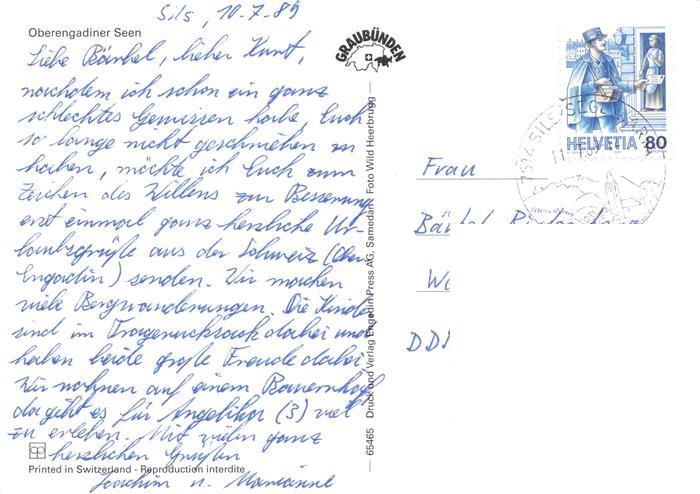 Sils, 10.7.89
Oberengadiner Seen
Liebe Bärbel, lieber Kurt,
nachdem ich schon ein ganz
schlechtes Gewissen habe, Euch
so lange nicht geschrieben zu
haben, möchte ich Euch zum
Zeichen des Willens zur Besserung
erst einmal ganz herzliche Ur-
laubsgrüße aus der Schweiz (Ober
Engadin) senden. Wir machen
viele Bergwanderungen. Die Kinder
sind im Tragerucksack dabei und
haben beide große Freude dabei.
Wir wohnen auf einem Bauernhof
da gibt es für Angelika (3) viel
zu erleben. Mit vielen ganz
herzlichen Grüßen
Joachim u. Marianne
Printed in Switzerland - Reproduction interdite
GRAUBÜNDEN
65465 Druck und Verlag Engadin Press AG, Samedan Foto Wild Heerbrugg
HELVETIA 80
Frau
Bärbel
DDR